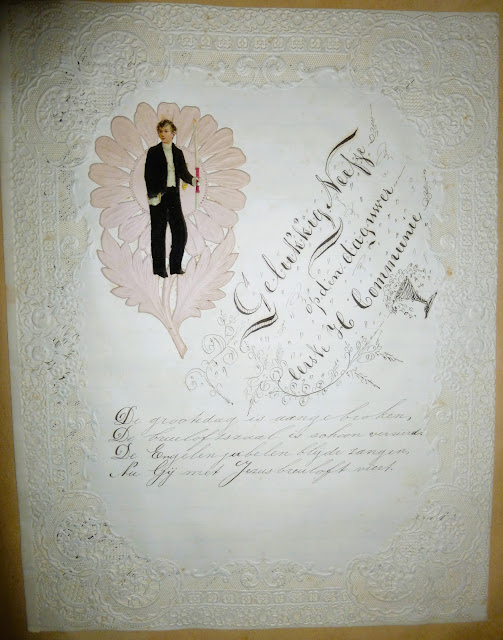 Gelukkig Neefje
op den dag uwer
eerste H Communie
De grootedag is aangebroken,
De bruiloftszaal is schoon versierd.
De Engelen jubelen blijde zangen,
Nu Gij met Jesus bruiloft viert.